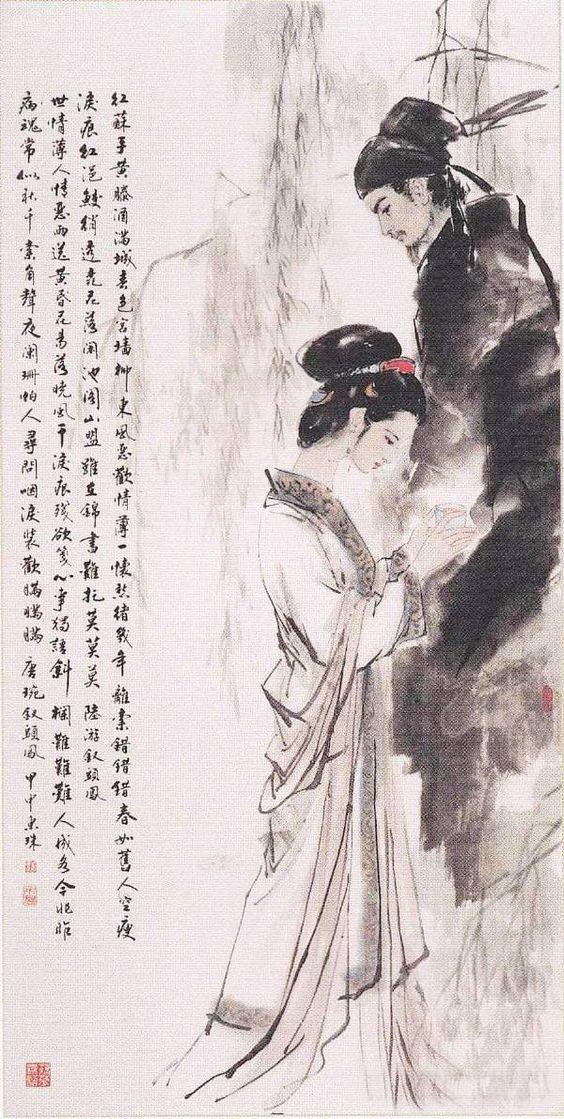 红蘇手黄滕酒满城春色宫墙柳東風惡歡情薄一懷愁緒幾年離索錯錯錯春如舊人空瘦
淚痕红浥鮫绡透桃花落閑池閣山盟雖在錦書難托莫莫莫 陸游釵頭鳳
世情薄人情惡雨送黄昏花易落晓風干淚痕殘欲箋心事獨語斜欄難難難人成各今非昨
病魂常似秋千索角聲夜闌珊怕人尋問咽淚装歡瞞瞞瞞 唐琬釵頭鳳 甲申東珠